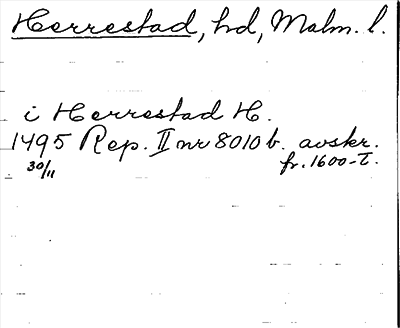 Herrestad, hd, Malm. l.
i Herrestad H.
1495 Rep. II nr 8010 b. avskr.
30/11 fr. 1600-t.